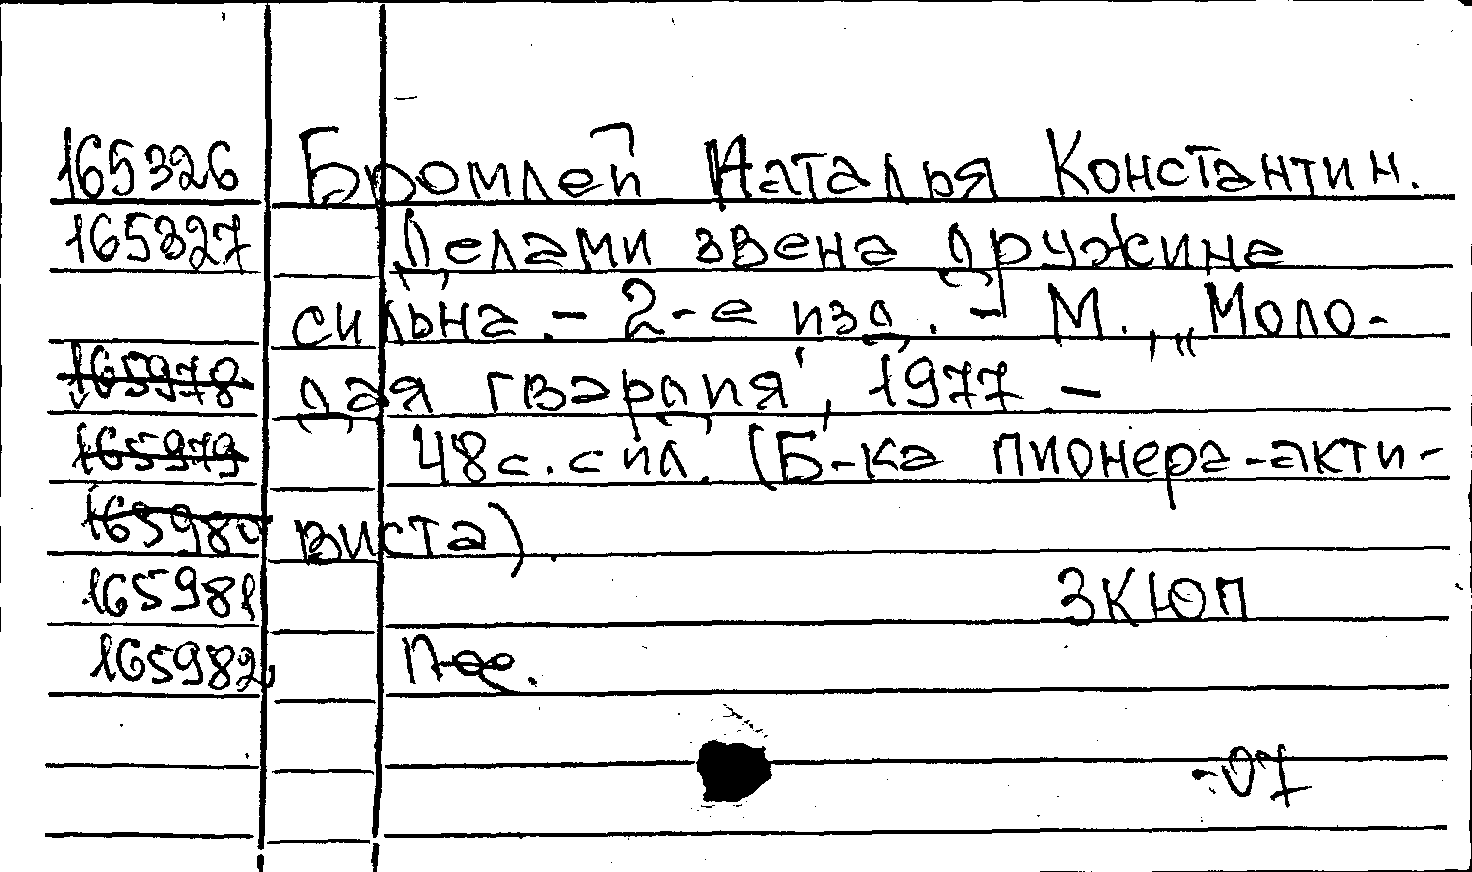 165326 Бромлей Наталья Константин.
165327 Делами звена дружина
сильна. - 2-е изд. - М., „Моло-
165978 дая гвардия", 1977 -
165979 48 с. с ил. (Б-ка пионера-акти-
165980 виста).
165981 3КЮП
165982
-07